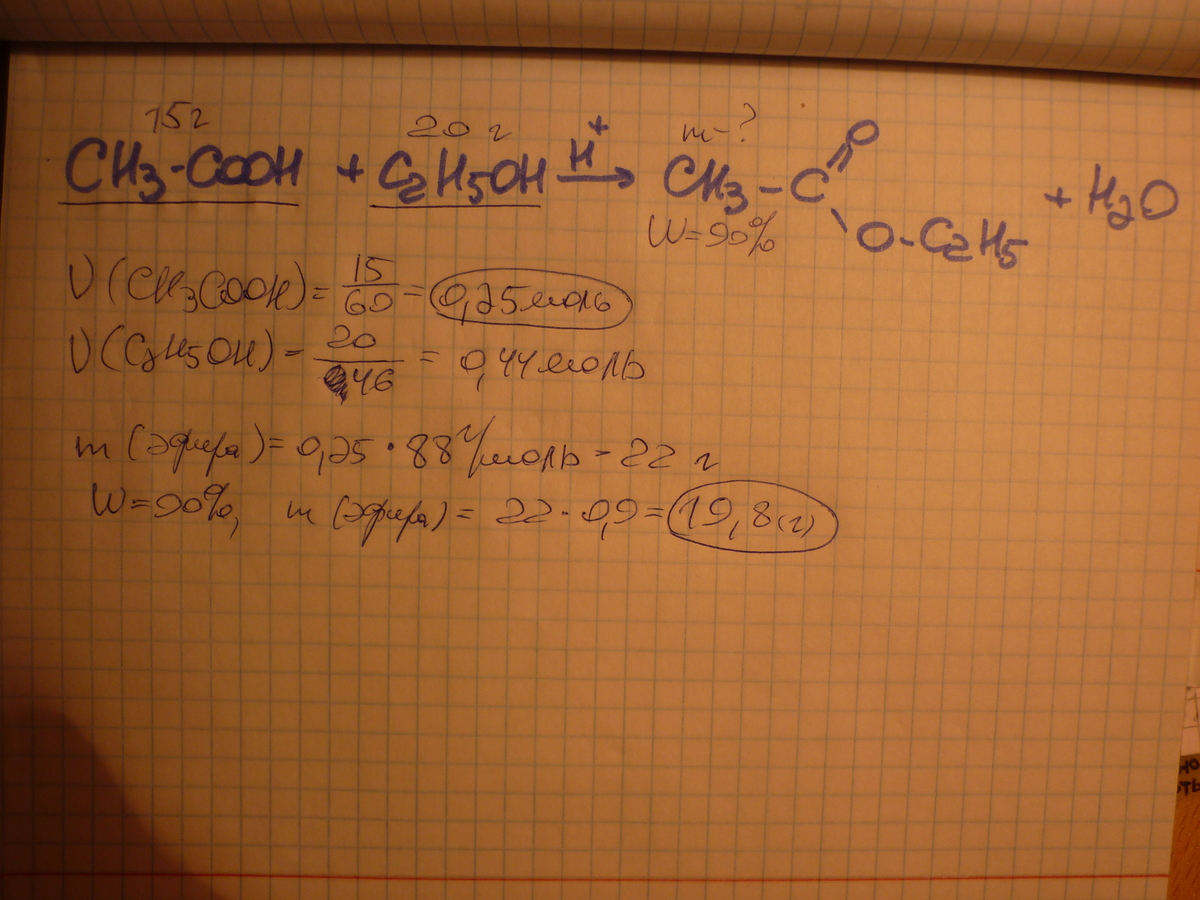 15г 20 г m-?
CH3-COOH + C2H5OH H+ → CH3-C =O O-C2H5 + H2O
W=90%
ν(CH3COOH)= 15/60 = 0,25моль
ν(C2H5OH)- 20/46 = 0,44моль
m(эфира)= 0,25·88г/моль-22 г
W=90%, m(эфира)= 22·0,9=19,8(г)
но
сть